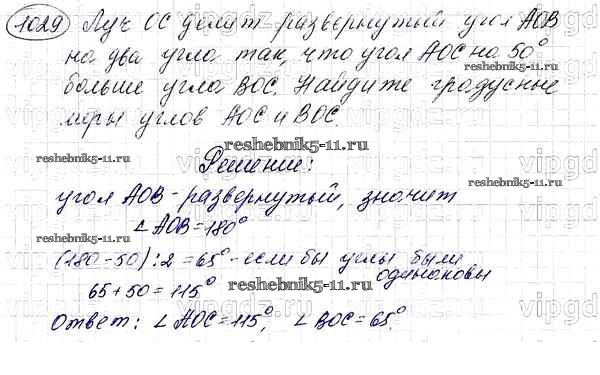 1029 Луч ОС делит развернутый угол АОВ
на два угла так, что угол АОС на 50°
больше угла ВОС. Найдите градусные
меры углов АОС и ВОС.
Решение:
угол АОВ - развернутый, значит
∠ АОВ = 180°
(180 - 50) : 2 = 65° - если бы углы были
одинаковы
65 + 50 = 115°
Ответ: ∠ АОС = 115°, ∠ ВОС = 65°.
reshebnik5-11.ru
reshebnik5-11.ru
reshebnik5-11.ru
reshebnik5-11.ru
reshebnik5-11.ru
reshebnik5-11.ru
vipgdz.ru